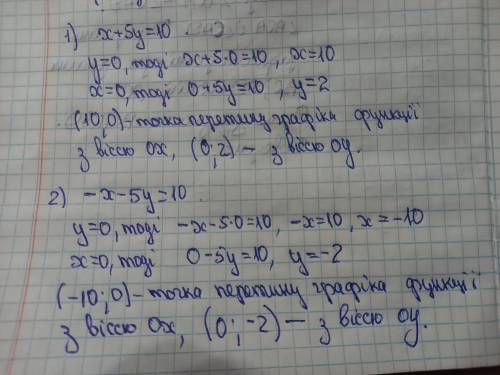 1) x+5y=10.
y=0, тоді x+5·0=10, x=10
x=0, тоді 0+5y=10, y=2
(10;0)-точка перетину графіка функції
з віссю Ox, (0;2) - з віссю Oy.
2) -x-5y=10.
y=0, тоді -x-5·0=10, -x=10, x=-10
x=0, тоді 0-5y=10, y=-2
(-10;0)-точка перетину графіка функції
з віссю Ox, (0;-2) - з віссю Oy.